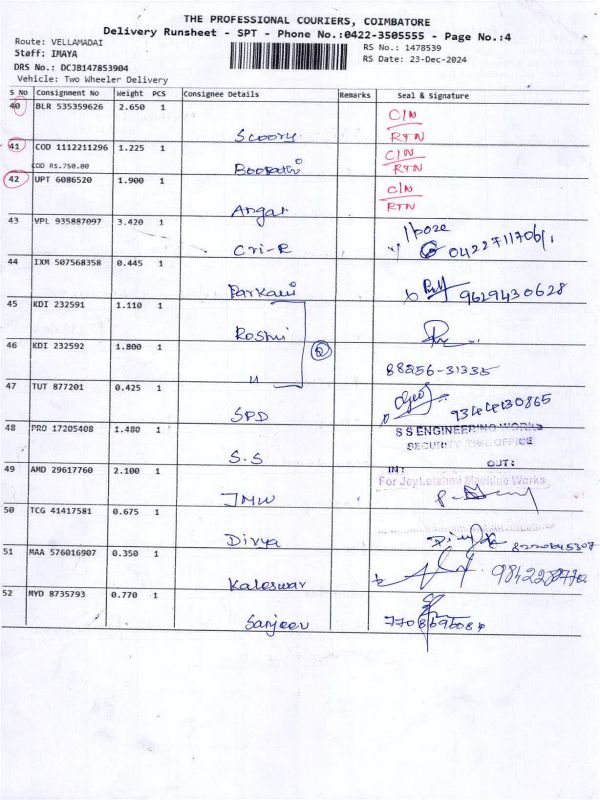 THE PROFESSIONAL COURIERS, COIMBATORE
Delivery Runsheet - SPT - Phone No.:0422-3505555 - Page No.:4
Route: VELLAMADAI
Staff: IMAYA
RS No.: 1478539
RS Date: 23-Dec-2024
DRS No.: DCJB147853904
Vehicle: Two Wheeler Delivery
S No Consignment No Weight PCS Consignee Details Remarks Seal & Signature
40 BLR 535359626 2.650 1 C/N
Scoory RTN
41 COD 1112211296 1.225 1 C/N
COD Rs.750.00 Boopathi RTN
42 UPT 6086520 1.900 1 C/N
Angar RTN
43 VPL 935887097 3.420 1
Cri-R
44 IXM 507568358 0.445 1
Parkavi 9629430628
45 KDI 232591 1.110 1
Roshni
46 KDI 232592 1.800 1 2
" 88256-31335
47 TUT 877201 0.425 1
SPD
48 PRO 17205408 1.480 1 S S ENGINEERING WORKS
S.S SECURITY OFFICE
49 AMD 29617760 2.100 1 IN: OUT:
For Jey Letshmi Machine Works
JMW
50 TCG 41417581 0.675 1
Divya
51 MAA 576016907 0.350 1
Kaleswar
52 MYD 8735793 0.770 1
Sanjeev